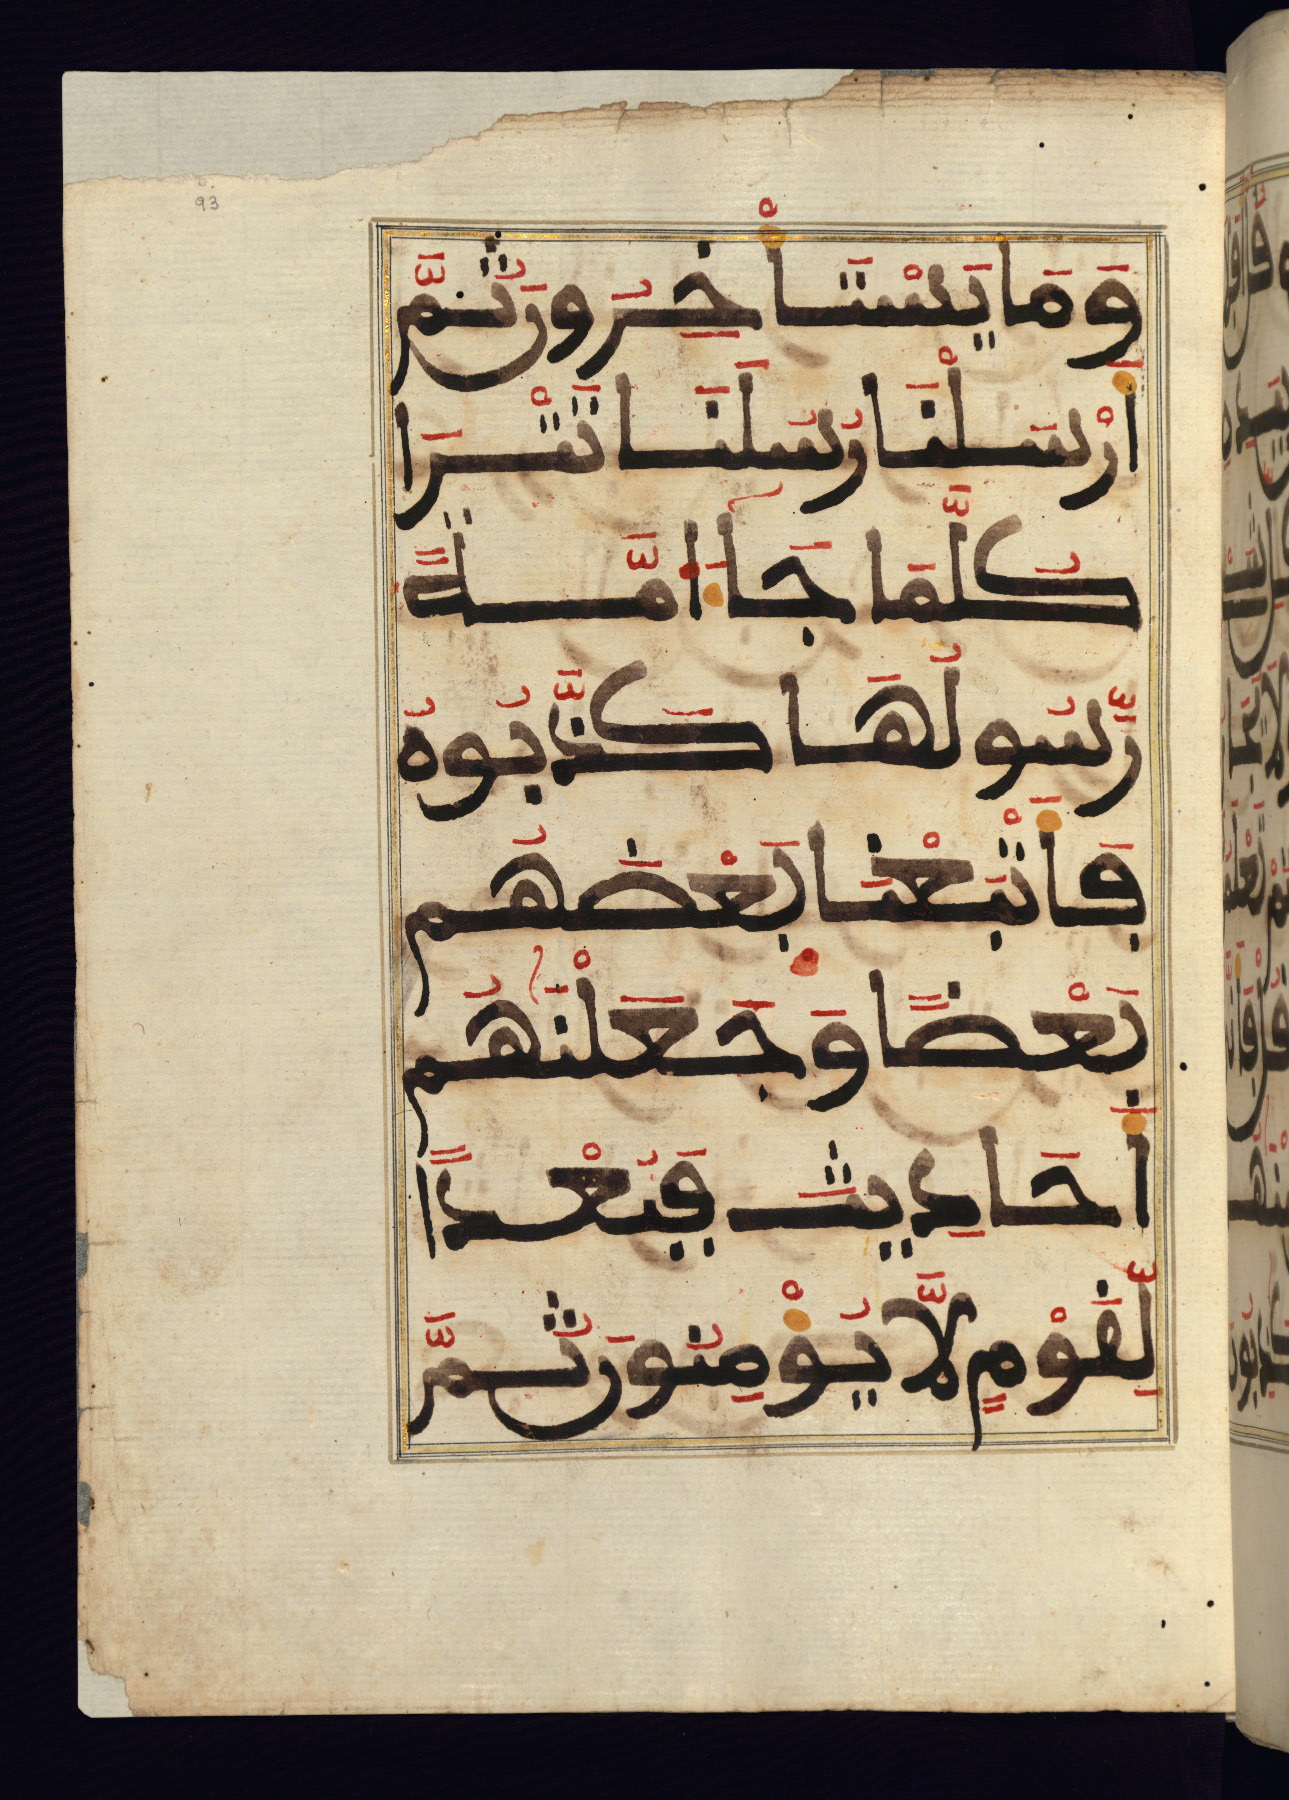 93
وَمَا يَسْتَأْخِرُونَ ثُمَّ
أَرْسَلْنَا رُسُلَنَا تَتْرَا
كُلَّمَا جَآءَ امَّةً
رَّسُولُهَا كَذَّبُوهُ
فَأَتْبَعْنَا بَعْضَهُم
بَعْضًا وَجَعَلْنَٰهُمُ
أَحَادِيثَ فَبُعْدًا
لِّقَوْمٍ لَّا يُؤْمِنُونَ ثُمَّ